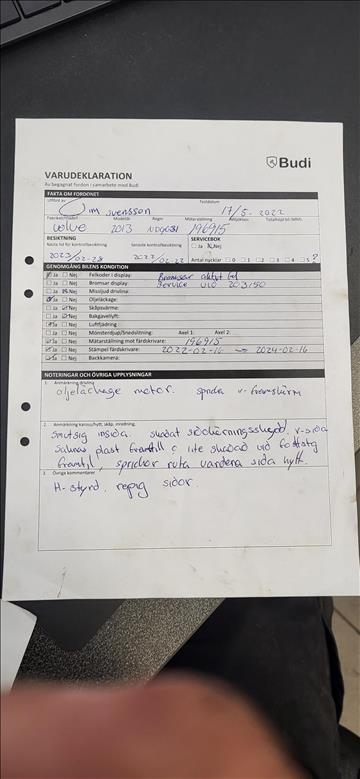 Budi
VARUDEKLARATION
Av begagnat fordon i samarbete med Budi
FAKTA OM FORDONET
Utförd av Testdatum
Jim svensson 17/5-2022
Fabrikat/modell Modellår Regnr Mätarställning
volvo 2013 196915
BESIKTNING SERVICEBOK
Nästa tid för kontrollbesiktning Senaste kontrollbesiktning Ja Nej
2023/02-28 2022/02-22 Antal nycklar 0 1 2 3 4 5 ?
GENOMGÅNG BILENS KONDITION
Ja Nej Felkoder i display
Ja Nej Bromsar display: Service vid 203150
Ja Nej Missljud drivlina:
Ja Nej Oljeläckage:
Ja Nej Skåpsvärme:
Ja Nej Bakgavellyft:
Ja Nej Luftfjädring
Ja Nej Mönsterdjup/Snedslitning: Axel 1: Axel 2:
Ja Nej Mätarställning mot färdskrivare: 196915
Ja Nej Stämpel färdskrivare: 2022-02-16 → 2024-02-16
Ja Nej Backkamera:
NOTERINGAR OCH ÖVRIGA UPPLYSNINGAR
1. Anmärkning drivlina
oljeläckage motor. v-framskärm
2. Anmärkning kaross/hytt, skåp, inredning,
Smutsig insida. skadat v-sida
saknas plast framtill lite skadad vid fotsteg
framtill, sprickor ruta vardera sida hytt.
3. Övriga kommentarer
H-styrd. repig sidor.